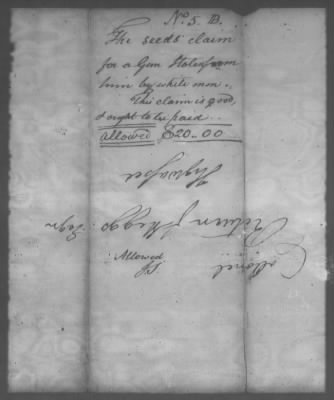 No. 5. B.
The seeds claim
for a Gun Stolen from
him by white men.
This claim is good,
& ought to be paid
allowed $20.00
Hywassee
Colonel
Return J. Meigs
Allowed